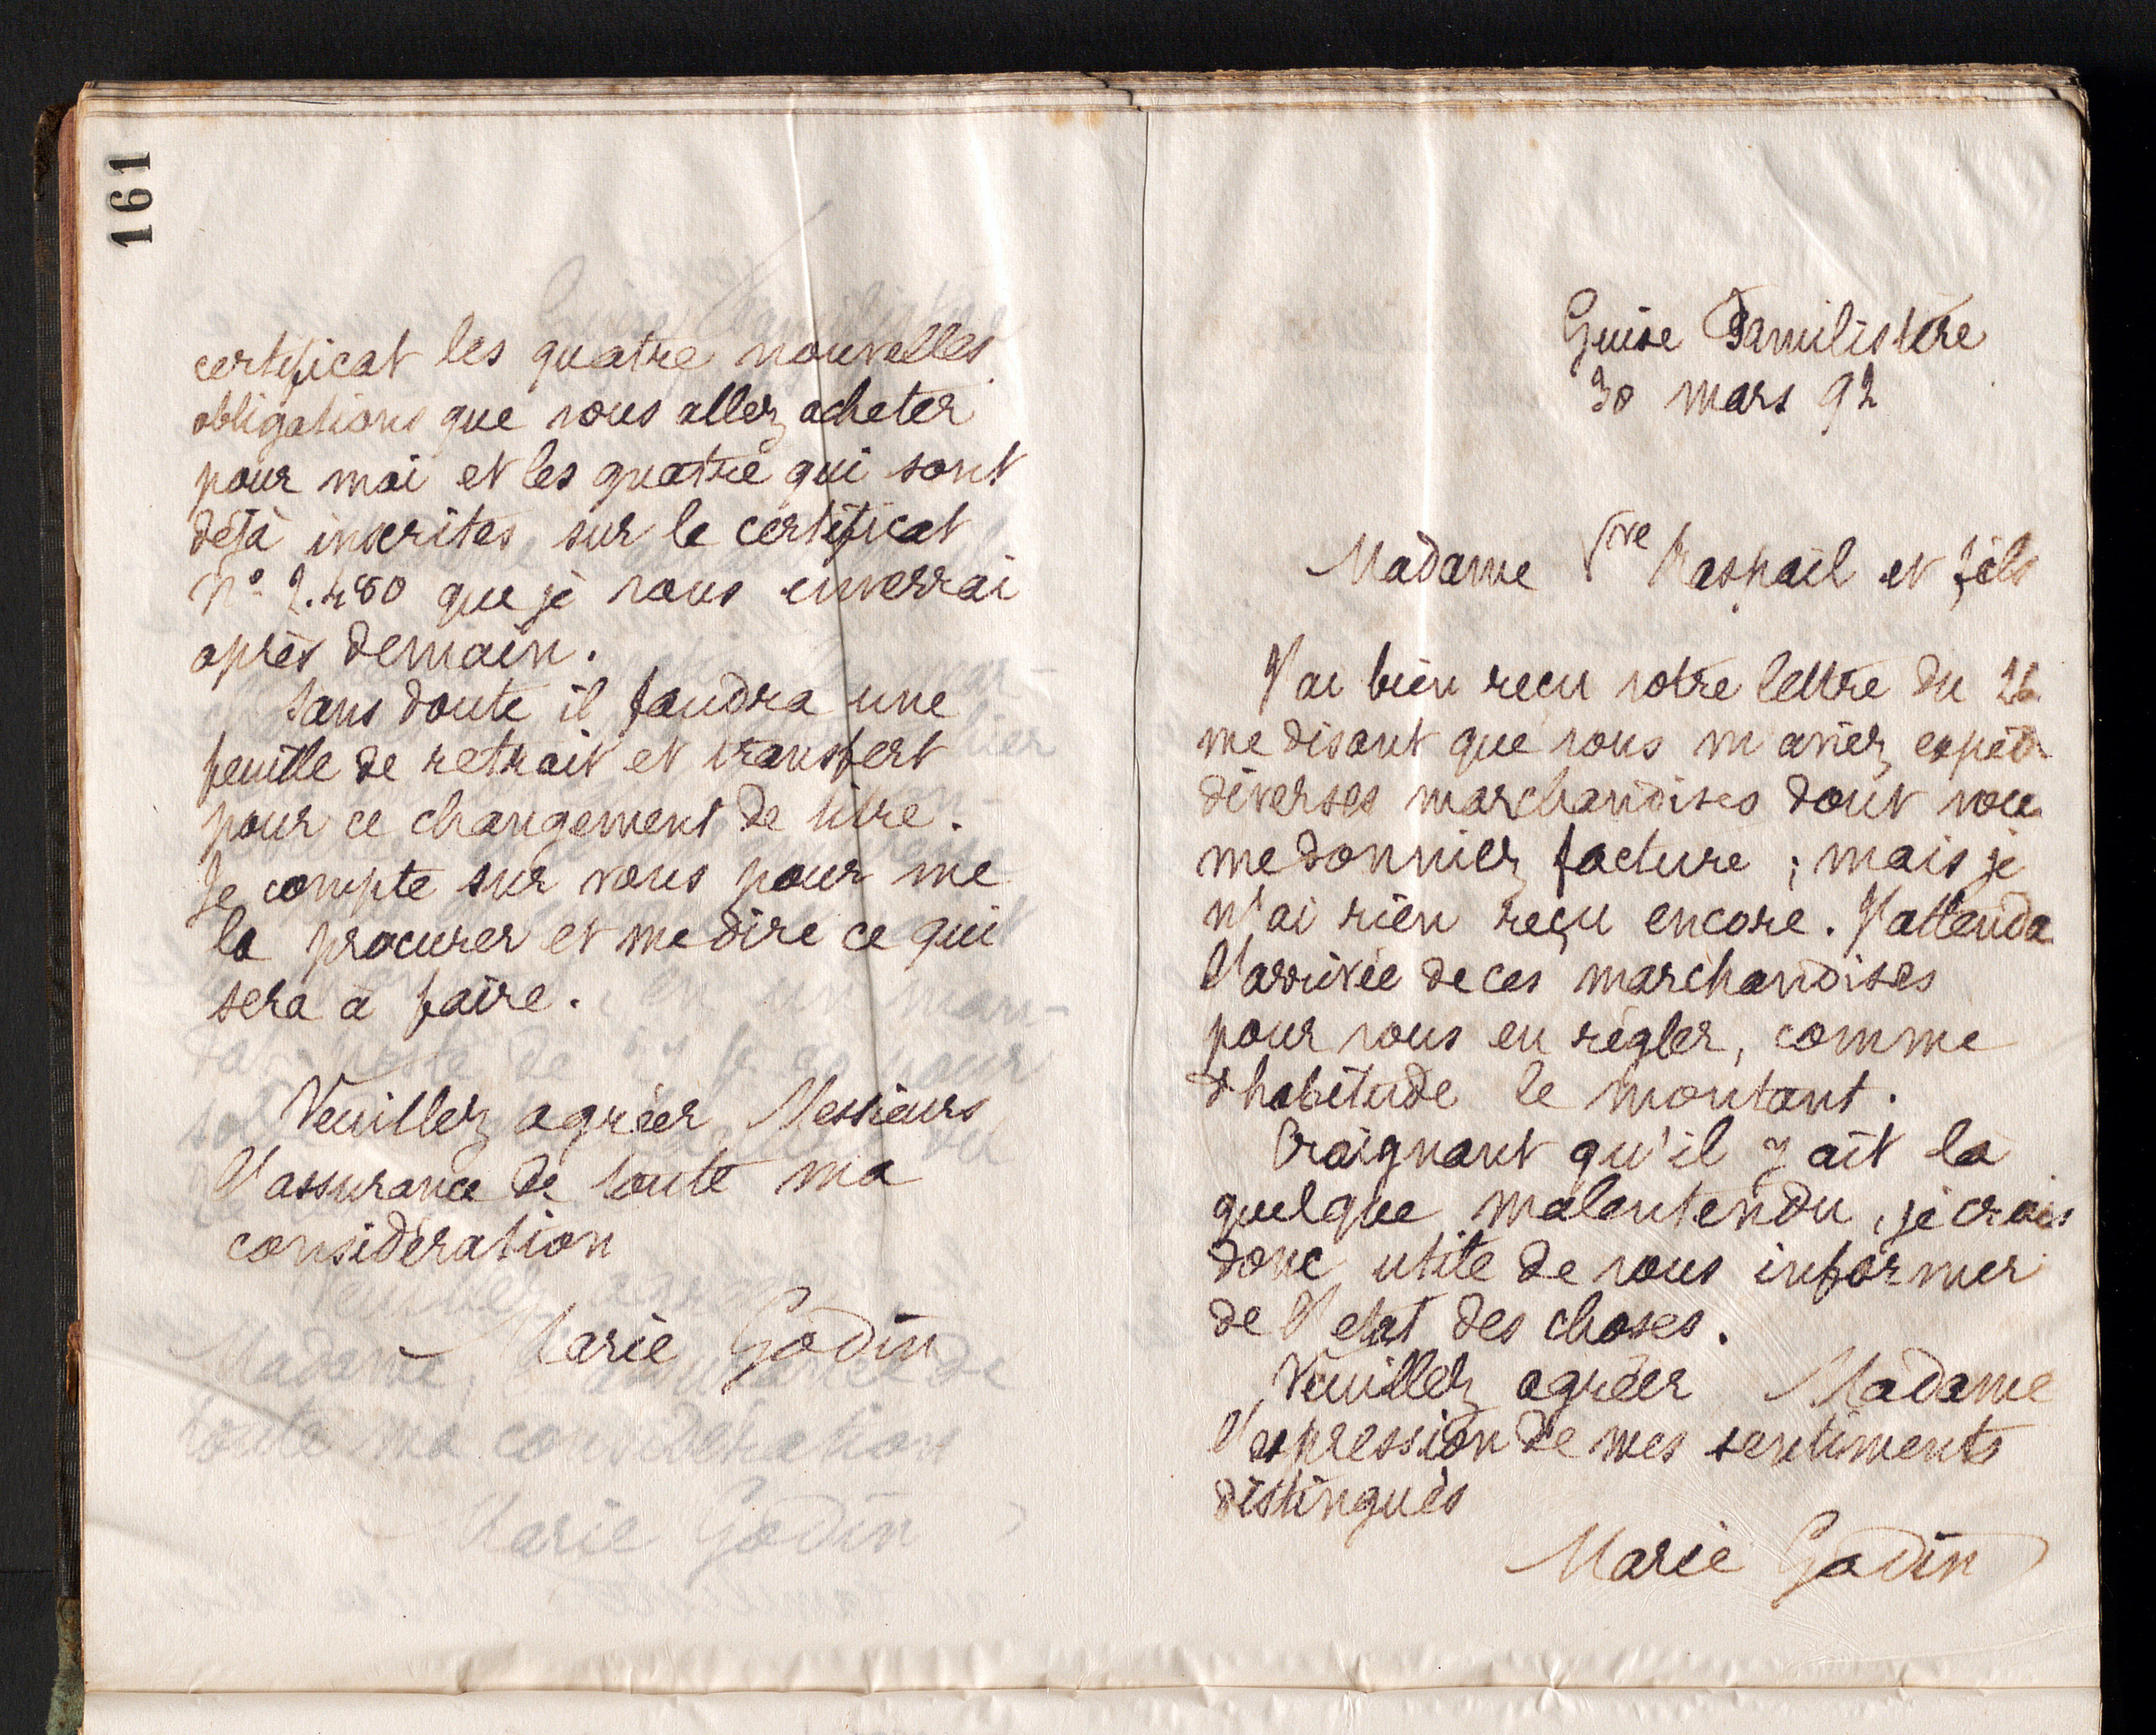 161
certificat les quatre nouvelles
obligations que vous allez acheter
pour moi et les quatre qui sont
déjà inscrites sur le certificat
N° 2.480 que je vous enverrai
après demain.
Sans doute il faudra une
feuille de retrait et transfert
pour ce changement de titre.
Je compte sur vous pour me
la procurer et me dire ce qui
sera à faire.
Veuillez agréer, Messieurs
l'assurance de toute ma
considération
Marie Godin
Guise Familistère
30 mars 92
Madame Vve Raspail et fils
J'ai bien reçu votre lettre du 26
me disant que vous m'aviez expéd
diverses marchandises dont vou
me donniez facture ; mais je
n'ai rien reçu encore. J'attends
l'arrivée de ces marchandises
pour vous en régler, comme
d'habitude le montant.
Craignant qu'il y ait là
quelque malentendu, je crois
donc utile de vous informer
de l'etat des choses.
Veuillez agréer Madame
l'expression de mes sentiments
distingués
Marie Godin